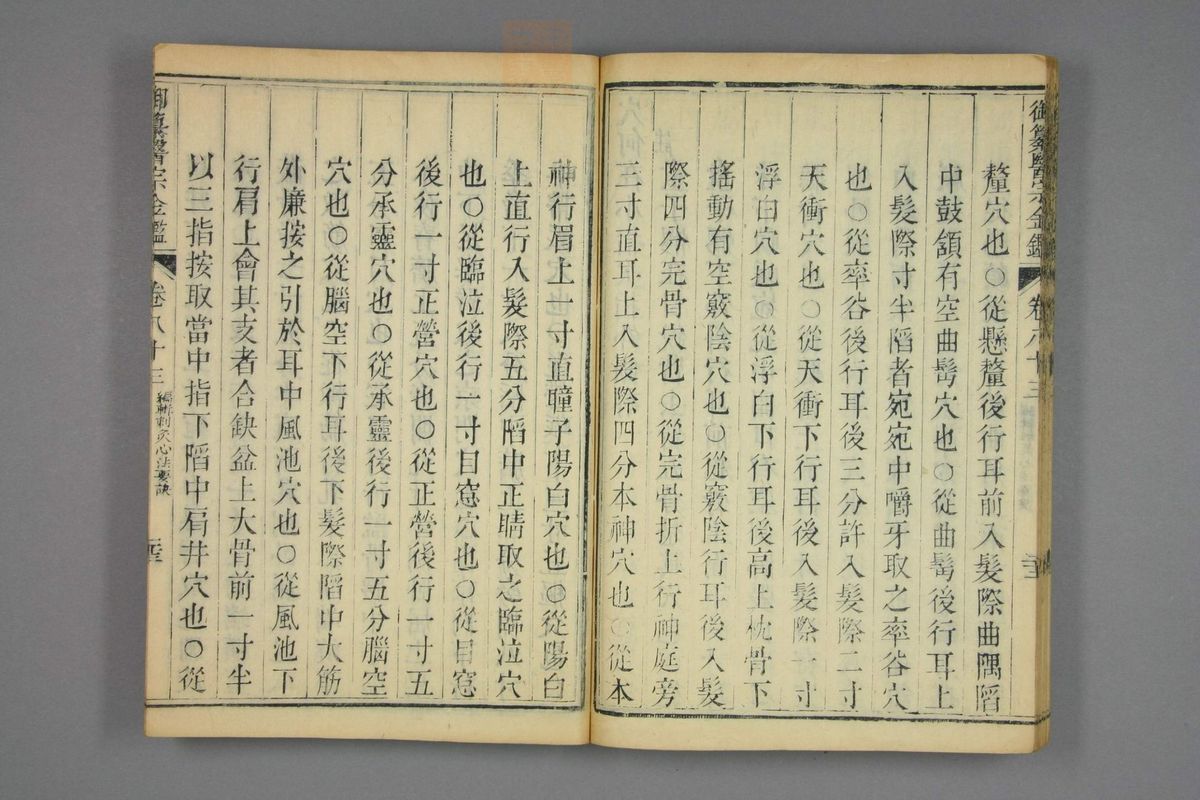 御纂醫宗金鑑 卷八十三
釐穴也○從懸釐後行耳前入髮際曲隅陷
中鼓頷有空曲鬢穴也○從曲鬢後行耳上
入髮際寸半陷者宛宛中嚼牙取之率谷穴
也○從率谷後行耳後三分許入髮際二寸
天衝穴也○從天衝下行耳後入髮際一寸
浮白穴也○從浮白下行耳後高上枕骨下
搖動有空竅陰穴也○從竅陰行耳後入髮
際四分完骨穴也○從完骨折上行神庭旁
三寸直耳上入髮際四分本神穴也○從本
神行眉上一寸直瞳子陽白穴也○從陽白
上直行入髮際五分陷中正睛取之臨泣穴
也○從臨泣後行一寸目窻穴也○從目窻
後行一寸正營穴也○從正營後行一寸五
分承靈穴也○從承靈後行一寸五分腦空
穴也○從腦空下行耳後下髮際陷中大筋
外廉按之引於耳中風池穴也○從風池下
行肩上會其支者合缺盆上大骨前一寸半
以三指按取當中指下陷中肩井穴也○從
御纂醫宗金鑑 卷八十三 編輯刺灸心法要訣